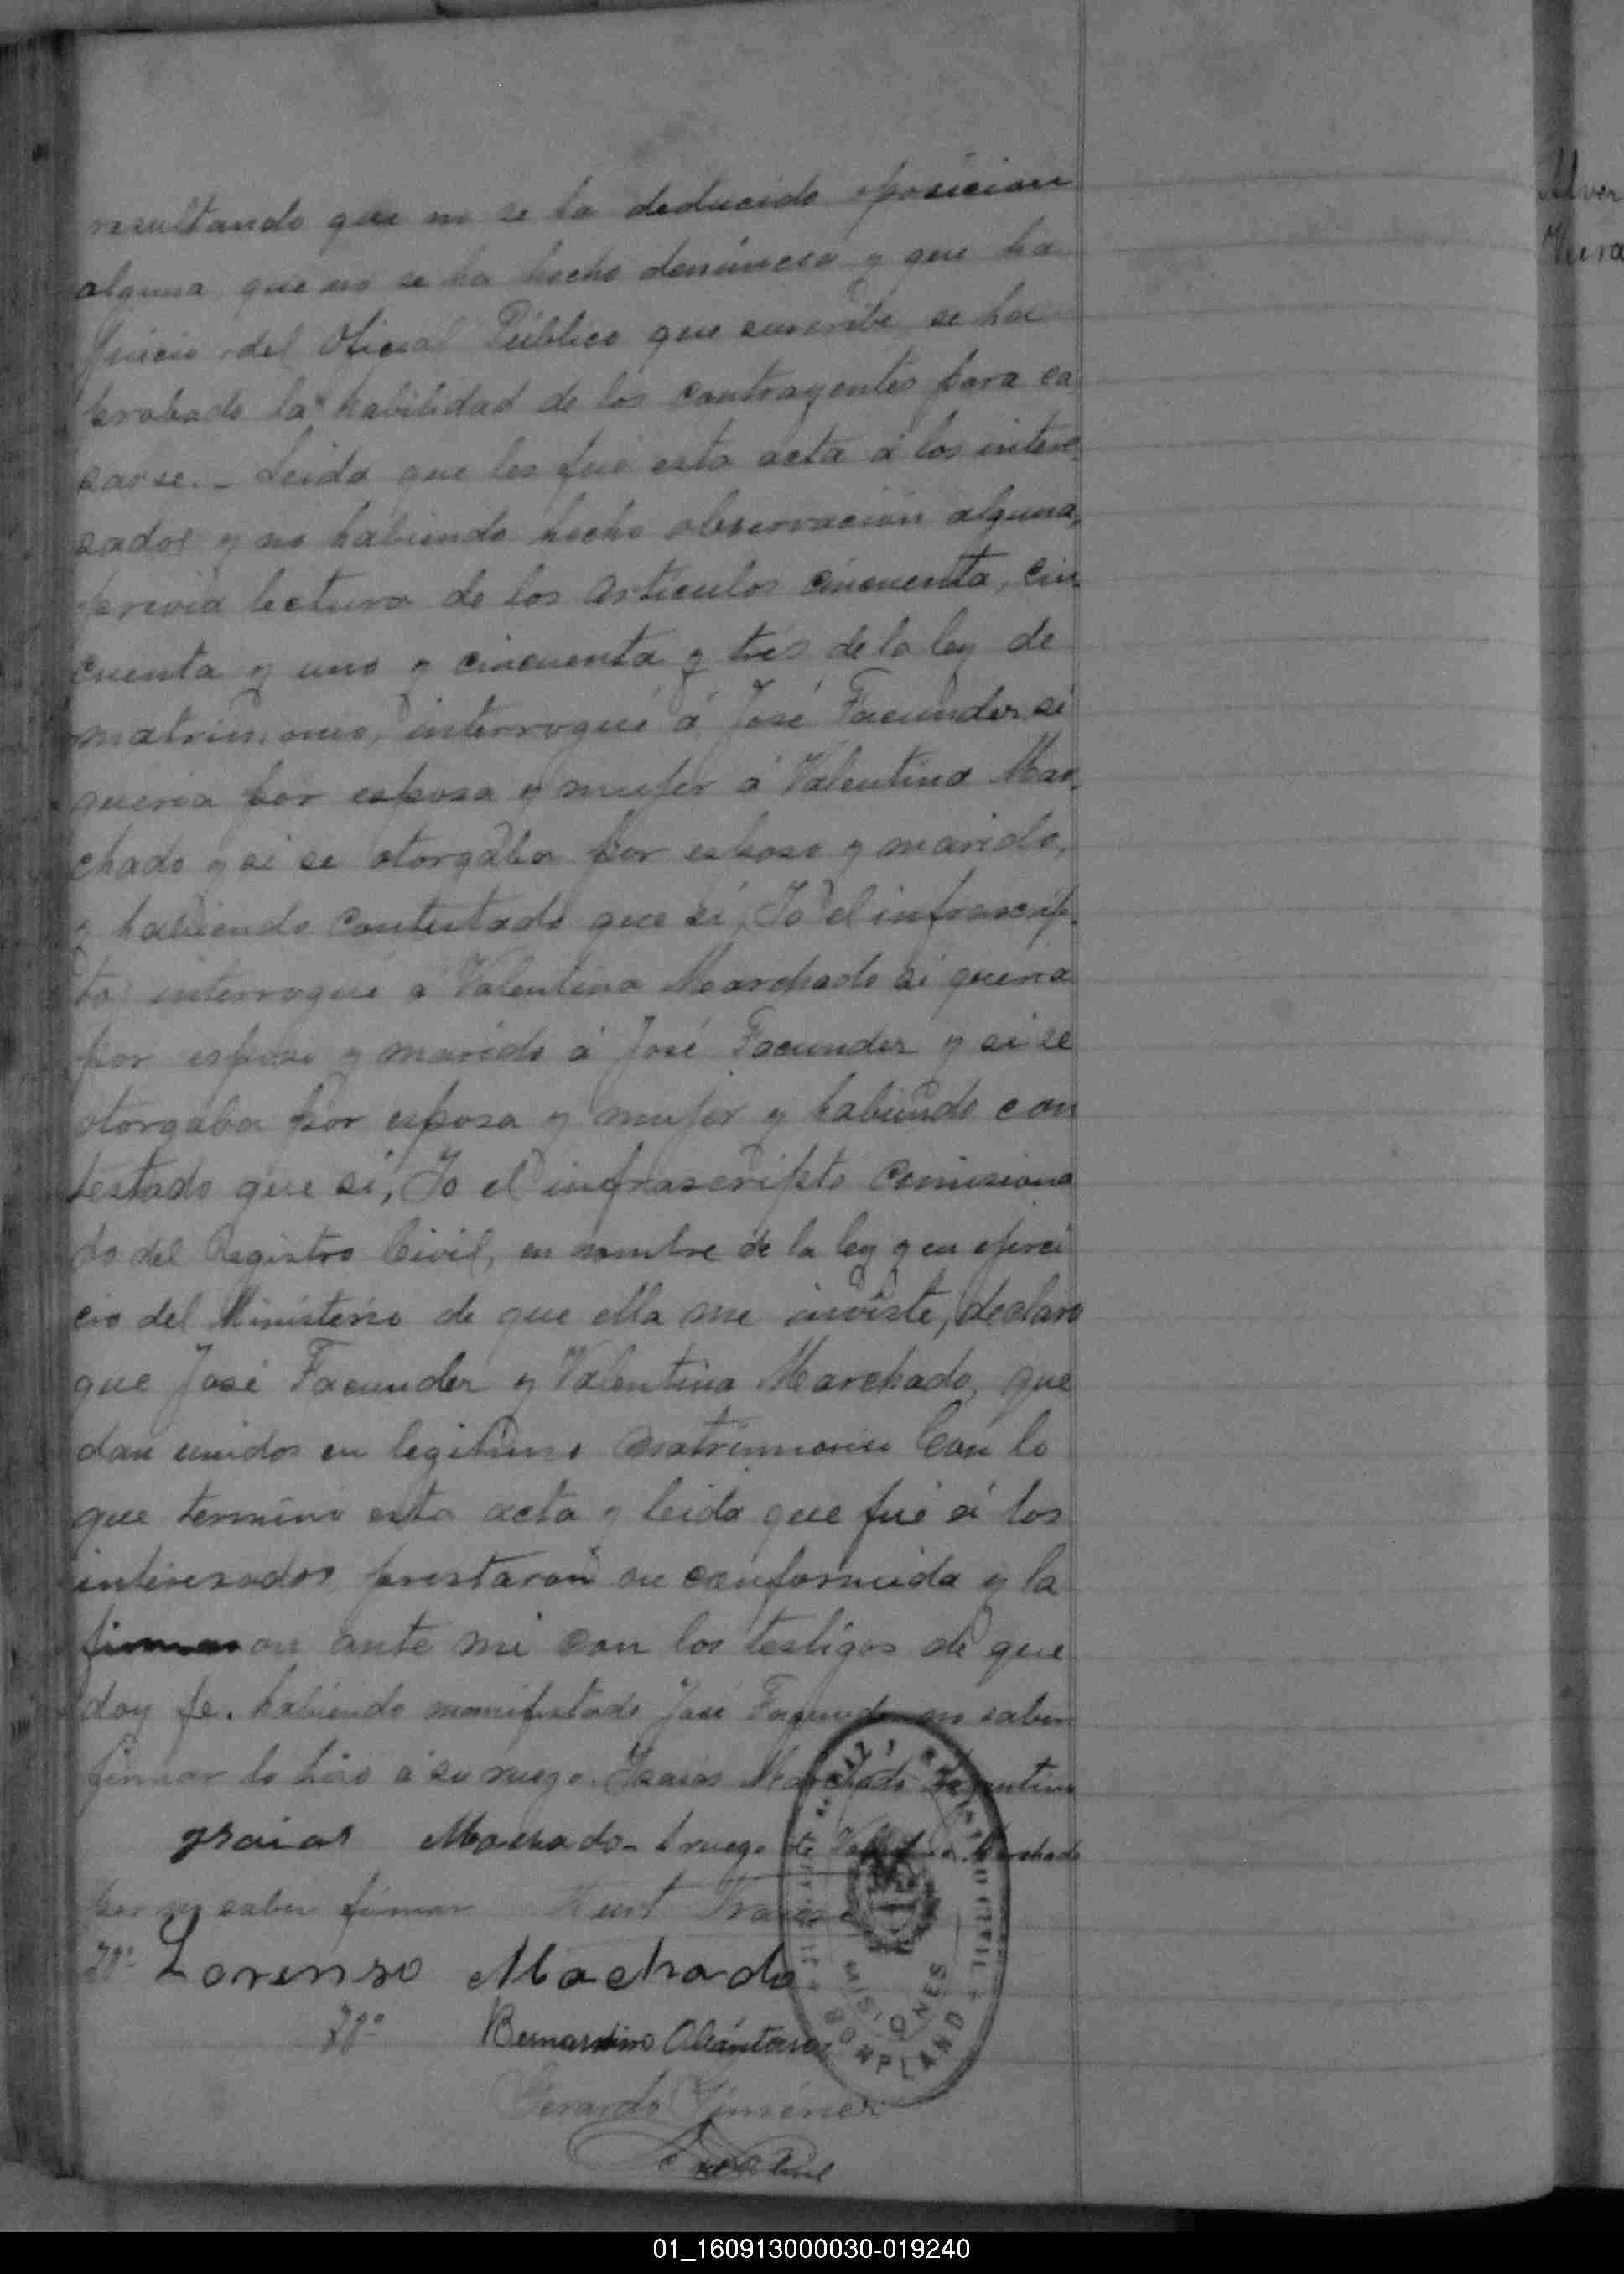 resultando que no se ha deducido oposicion
alguna, que no se ha hecho denuncia y que ha
juicio del Oficial Público que suscribe se ha
probado la habilidad de los contrayentes para ca
sarse. _ Leida que les fué esta acta á los intere_
sados y no habiendo hecho observacion alguna,
previa lectura de los articulos cincuenta, cin
cuenta y uno y cincuenta y trés de la ley de
matrimonio, interrogué á José Facunder si
queria por esposa y mujer á Valentina Mar_
chado y si se otorgaba por esposo y marido,
y habiendo contestado que si, Yo el infrascrip_
to interrogué a Valentina Marchado si queria
por esposo y marido á José Facunder y si se
otorgaba por esposa y mujer y habiendo con
testado que si, Yo el infrascripto Comisiona
do del Registro Civil, en nombre de la ley y en ejerci
cio del Ministerio de que ella me inviste, declaro
que José Facunder y Valentina Marchado, que
dan unidos en legitimo matrimonio Con lo
que termino esta acta y leida que fué á los
interesados prestaron su conformida y la
firmaron ante mi con los testigos de que
doy fe. habiendo manifestado José Facunder no saber
firmar lo hizo á su ruego. Isaias Marchado Argentino
Ysaias Machado_ A ruego de Valentina Marchado
por no saber firmar Kurt
Tº Lorenso Machado
Tº Bernardino Alcántara
Gerardo Giménez
MISIONES
BONPLAND
Alver
Viera
01_160913000030-019240